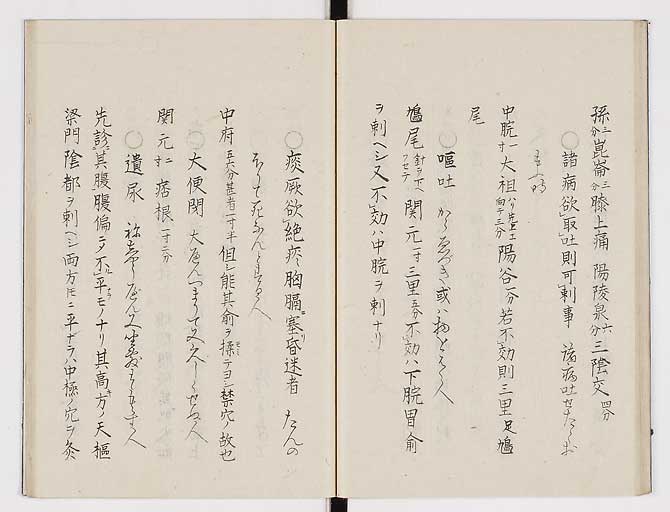 孫三分崑崙三分膝上痛 陽陵泉六分三陰交四分
○諸病欲取吐則可刺事 諸病吐せたき時
中脘寸一大祖ハリ先上エ向テ三分陽谷一分若不効則三里足鳩
尾
○嘔吐 からゑづき或ハ物をはく人
鳩尾針ヲ下ヘフセテ関元一寸三里五分不効ハ下脘胃俞
ヲ刺ヘシ又不効ハ中脘ヲ刺ナリ
○痰厥欲絶痰胸膈ニ塞リ昏迷者 たんの
中府五分甚者一寸半但シ能其俞ヲ揉テヨシ禁穴ノ故也
○大便閉 大べんつまりて
関元寸二痞根一寸二分
○遺尿
先診其腹腹偏ニテ不平モノナリ其高方ノ天樞
梁門陰都ヲ刺ヘシ両方トモニ平ナラハ中極ノ穴ヲ灸